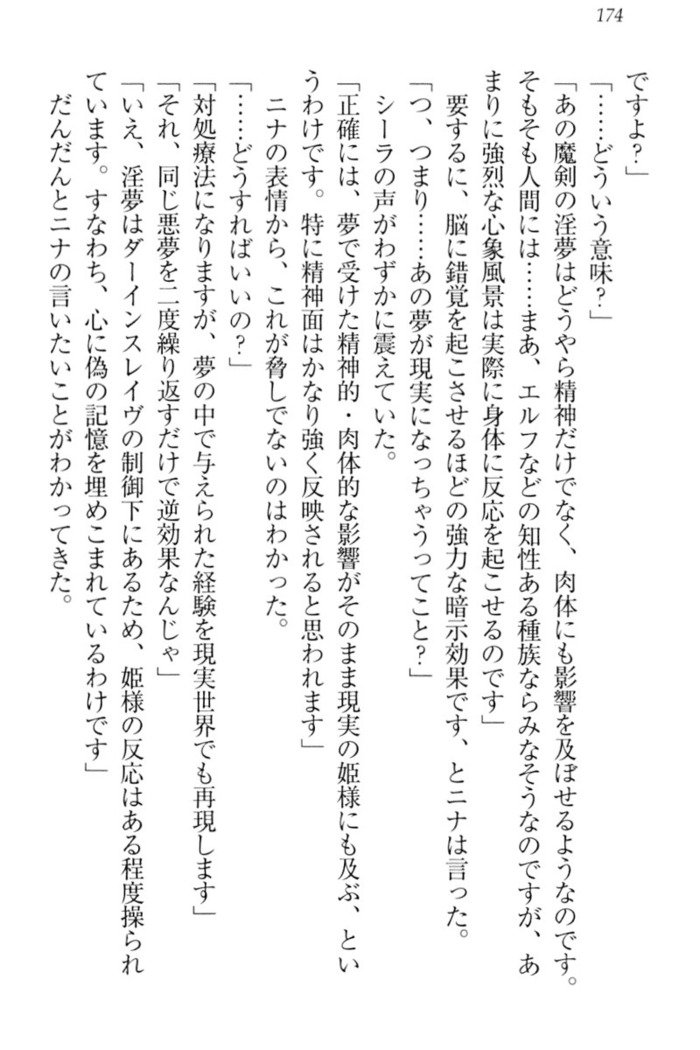 174
ですよ?」
「……どういう意味?」
「あの魔剣の淫夢はどうやら精神だけでなく、肉体にも影響を及ぼせるようなのです。
そもそも人間には……まあ、エルフなどの知性ある種族ならみなそうなのですが、あ
まりに強烈な心象風景は実際に身体に反応を起こせるのです」
要するに、脳に錯覚を起こさせるほどの強力な暗示効果です、とニナは言った。
「つ、つまり……あの夢が現実になっちゃうってこと?」
シーラの声がわずかに震えていた。
「正確には、夢で受けた精神的・肉体的な影響がそのまま現実の姫様にも及ぶ、とい
うわけです。特に精神面はかなり強く反映されると思われます」
ニナの表情から、これが脅しでないのはわかった。
「……どうすればいいの?」
「対処療法になりますが、夢の中で与えられた経験を現実世界でも再現します」
「それ、同じ悪夢を二度繰り返すだけで逆効果なんじゃ」
「いえ、淫夢はダーインスレイヴの制御下にあるため、姫様の反応はある程度操られ
ています。すなわち、心に偽の記憶を埋めこまれているわけです」
だんだんとニナの言いたいことがわかってきた。